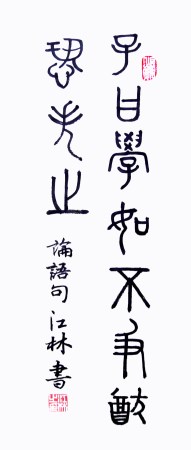 子曰學如不及猶
恐失之
論語句江林書